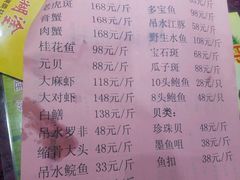 老虎斑 168元/斤
膏蟹 168元/斤
肉蟹 168元/斤
桂花鱼 98元/斤
元贝 88元/斤
大麻虾 118元/斤
大对虾 148元/斤
白鳝 138元/斤
吊水罗非 48元/斤
缩骨大头 48元/斤
吊水鲩鱼 33元/斤
多宝鱼
吊水江豚
野生水鱼
宝石斑 68元/斤
瓜子斑 88元/斤
10头鲍鱼 28元/只
8头鲍鱼 48元/只
贝类:
珍珠贝 48元/斤
墨鱼咀 38元/斤
鱼扣 38元/斤